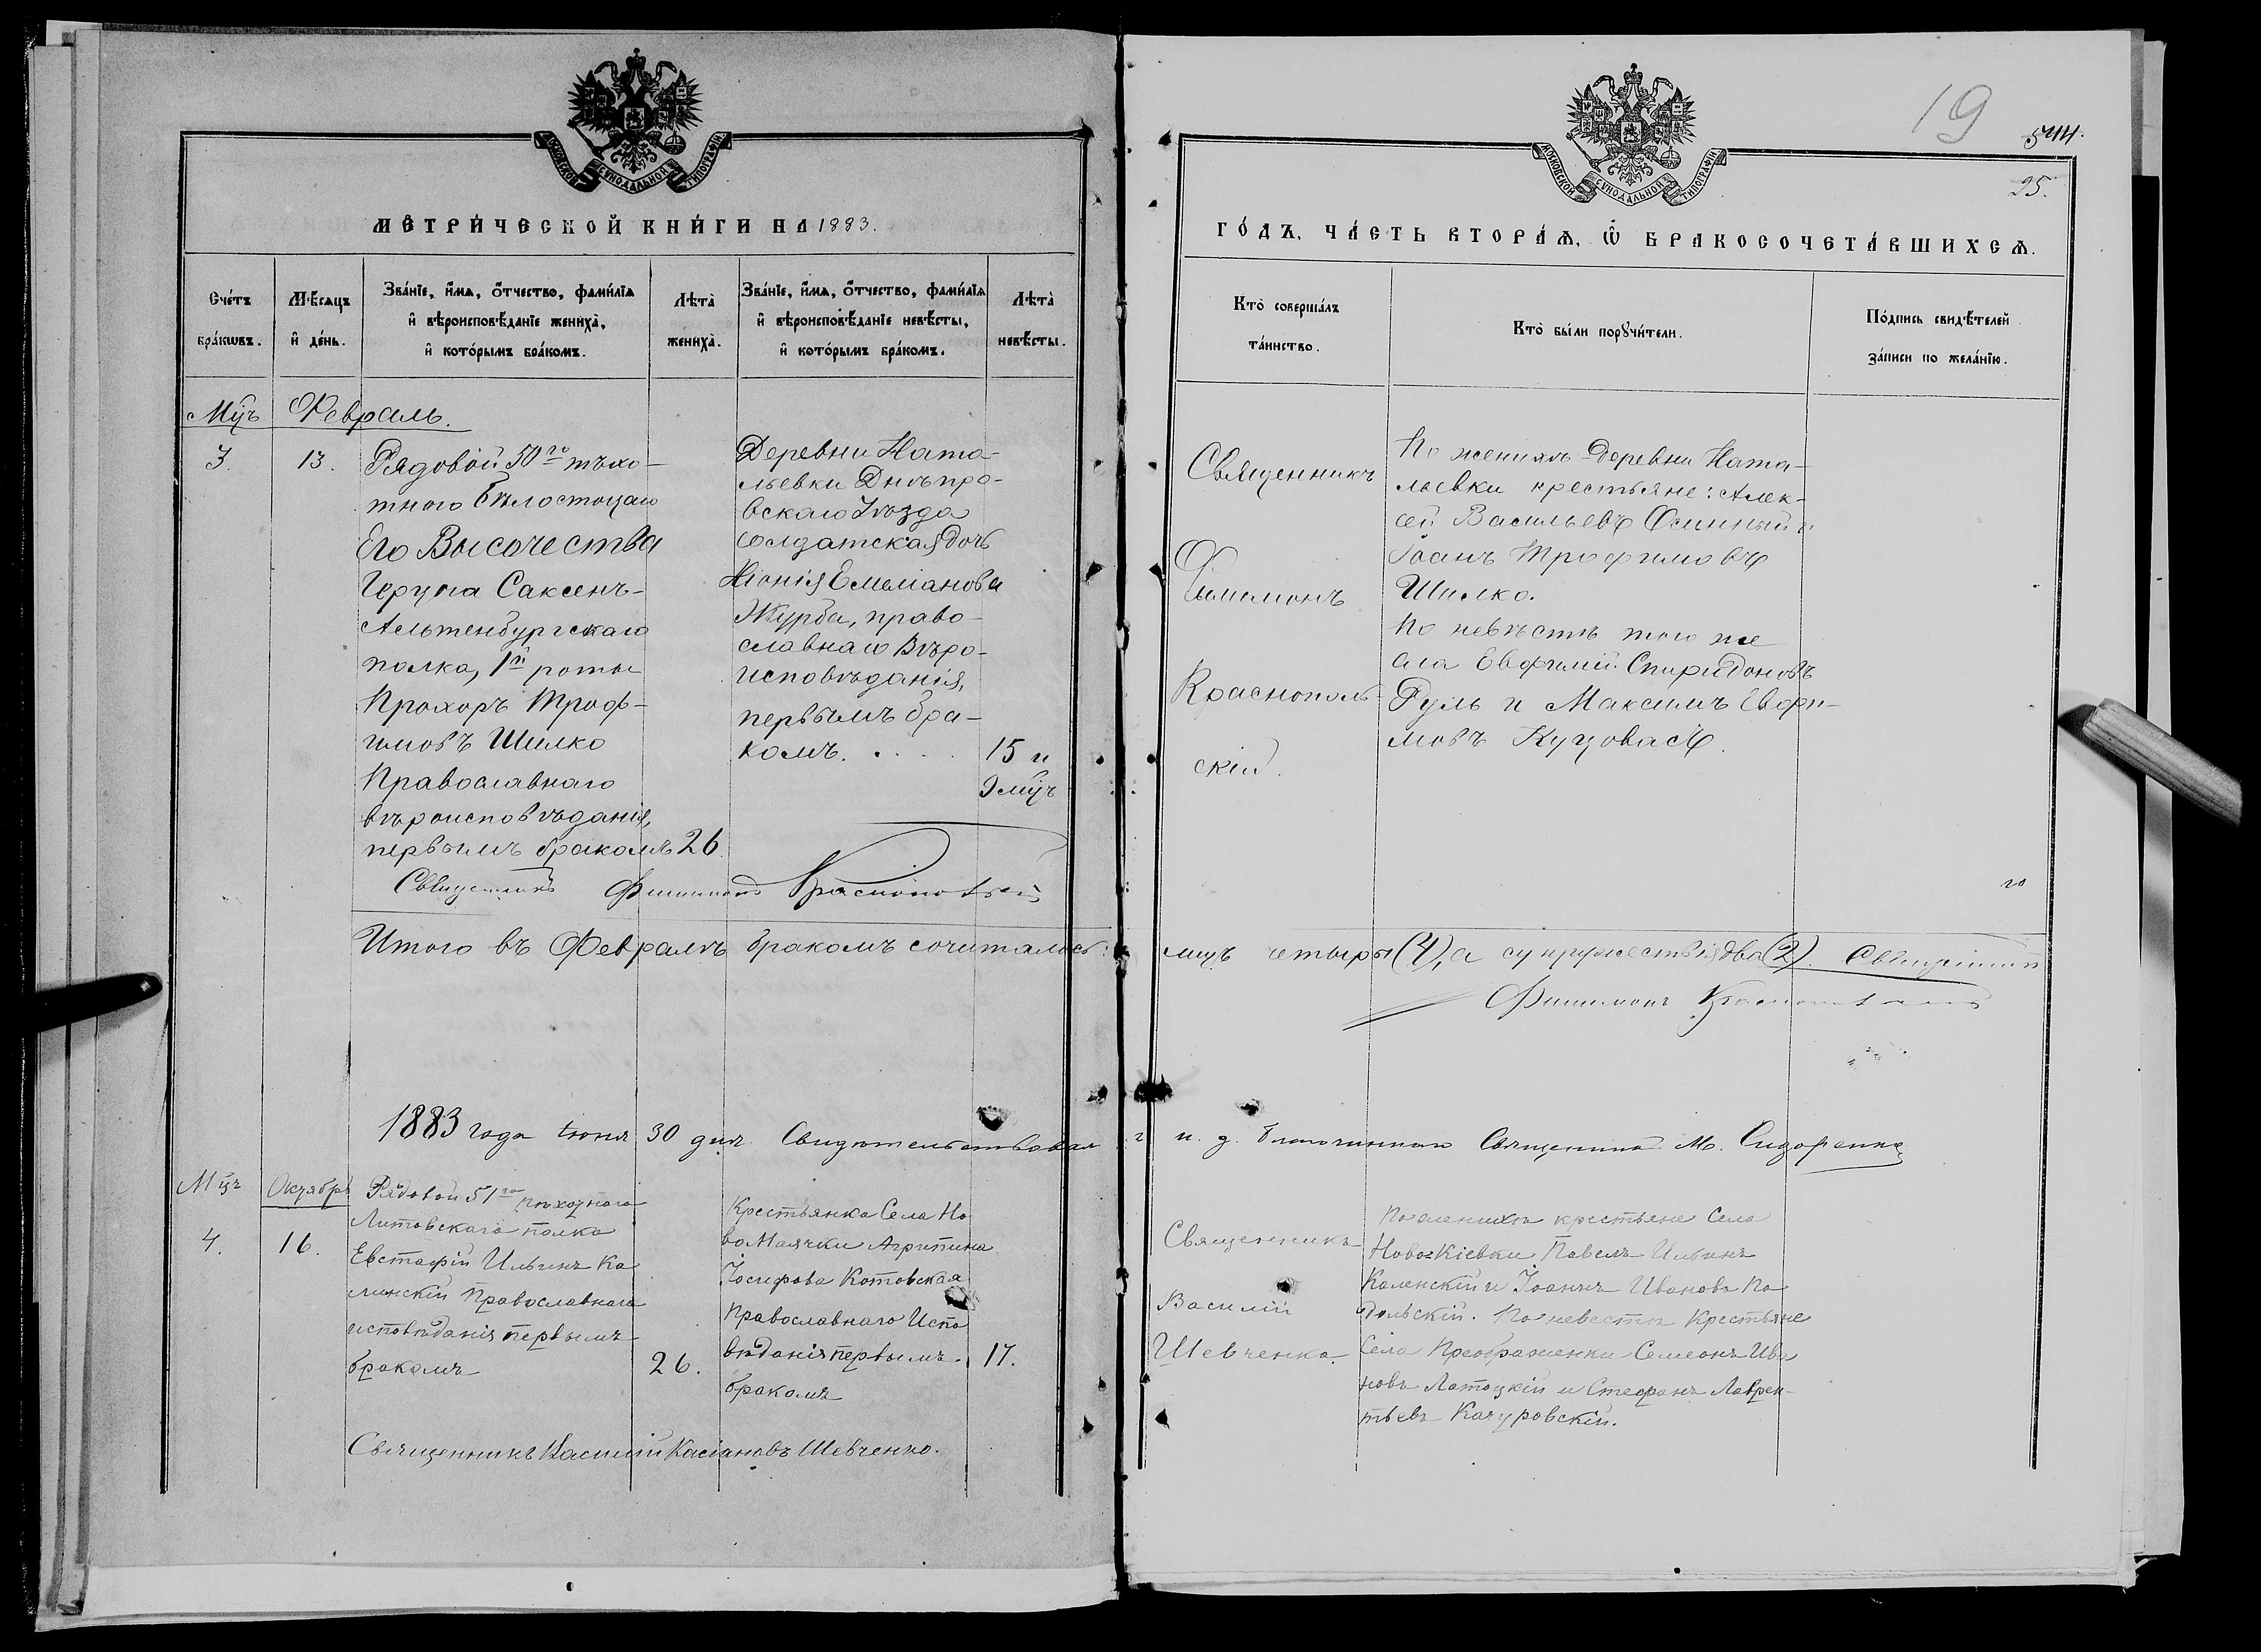 МОСКОВСКОЙ СѴНОДАЛЬНОЙ ТИПОГРАФІИ
МЕТРИ́ЧЕСКОЙ КНИ́ГИ НА 1883.
Сче́тъ бра́кωвъ.
Мѣ́сяцъ и҆ де́нь.
Зва́нїе, и҆́мѧ, ѻ҆́тчество, фами́лїѧ
и҆ вѣроисповѣ́данїе жениха̀,
и҆ кото́рымъ бра́комъ.
Лѣта̀ жениха̀.
Зва́нїе, и҆́мѧ, ѻ҆́тчество, фами́лїѧ
и҆ вѣроисповѣ́данїе невѣ́сты,
и҆ кото́рымъ бра́комъ.
Лѣта̀ невѣ́сты.
Мцъ Февраль.
3.
13.
Рядовой 50го пѣхо-
тнаго Бѣлостоцкаго
Его Высочества
Герцога Саксенъ-
Альтенбургскаго
полка, 1й роты
Прохоръ Троф-
имовъ Шилко
Православнаго
вѣроисповѣданія,
первымъ бракомъ 26.
Деревни Ната-
льевки Днѣпро-
вскаго Уѣзда
солдатская дочь
Хіонія Емеліанова
Журба, право-
славнаго Вѣро-
исповѣданія,
первымъ бра-
комъ. . . . 15 и
9 мцъ
Священникъ Филимонъ Краснопольскій
Итого въ Февралѣ бракомъ сочиталось:
1883 года Іюня 30 дня Свидѣтельствовалъ
Мцъ Октябрь
4.
16.
Рядовой 51го пѣхотнаго
Литовскаго полка
Евстафій Ильинъ Ка
линскій Православнаго
исповѣданія первымъ
бракомъ 26.
Крестьянка Села Но
воМаячки Агрипина
Іосифова Котовская
Православнаго Испо
вѣданія первымъ 17.
бракомъ
Священникъ Василий Касіановъ Шевченко.
19
544.
25.
МОСКОВСКОЙ СѴНОДАЛЬНОЙ ТИПОГРАФІИ
ГО́ДЪ, ЧА́СТЬ ВТОРА́Ѧ, Ѡ҆ БРАКОСОЧЕТА́ВШИХСѦ.
Кто̀ соверша́лъ та́инство.
Кто̀ бы́ли порꙋчи́тели.
По́дпись свидѣ́телей за́писи по жела́нїю.
Священникъ
Филимонъ
Краснополь-
скій.
По женихѣ деревни Ната-
льевки крестьяне: Алек-
сей Васильевъ Осинный и
Іоанъ Трофимовъ
Шилко.
По невѣстѣ того же
села Евфимій Спиридоновъ
Руль и Максимъ Евфи-
мовъ Куцовасъ.
лицъ четыре (4), а супружествъ два (2). Священникъ
Филимонъ Краснопольскій
и. д. благочиннаго Священникъ М. Сидоренко
Священникъ
Василій
Шевченко.
По женихѣ крестьяне Села
НовоКіевки Павелъ Ильинъ
Калинскій и Іоаннъ Ивановъ По
дольскій. По невестѣ Крестьяне
Села Преображенки Семеонъ Ива
новъ Латоцкій и Стефанъ Лаврен-
тьевъ Качуровскій.